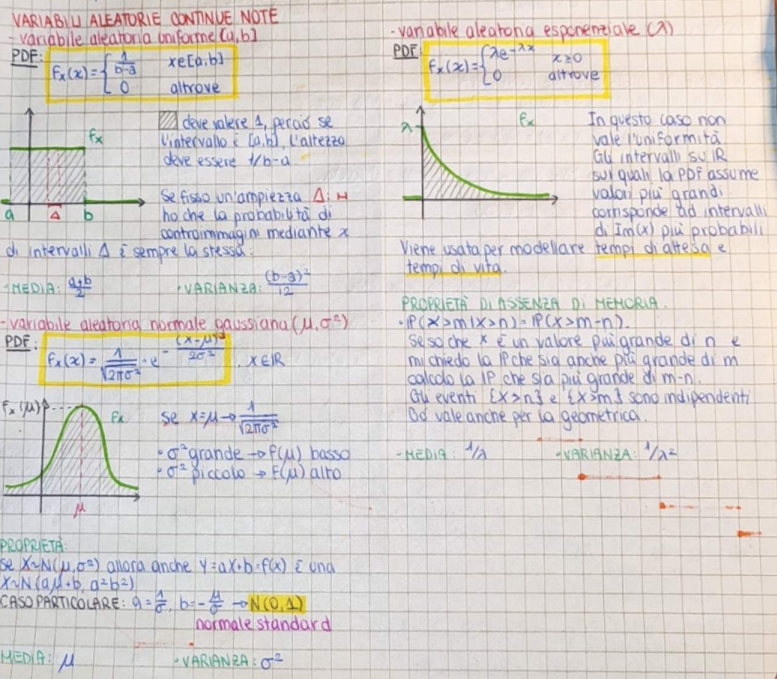 VARIABILI ALEATORIE CONTINUE NOTE
- variabile aleatoria uniforme [a,b]
PDF:
fx(x) = { 1/b-a x∈[a,b]
0 altrove
deve valere 1, perciò se
l'intervallo è [a,b], l'altezza
deve essere 1/b-a.
fx
a Δ b
Se fisso un'ampiezza Δ:
ho che la probabilità di
controimmagini mediante x
di intervalli Δ è sempre la stessa.
- MEDIA: a+b/2 • VARIANZA: (b-a)²/12
- variabile aleatoria normale gaussiana (μ,σ²)
PDF:
fx(x) = 1/√2πσ² · e^-(x-μ)²/2σ² , x∈ℝ
fx(μ)
fx
μ
se x=μ → 1/√2πσ²
• σ² grande → f(μ) basso
• σ² piccolo → f(μ) alto
PROPRIETÀ:
se X~N(μ,σ²) allora anche Y=aX+b=f(x) è una
X~N(aμ+b, a²b²)
CASO PARTICOLARE: a=1/σ, b=-μ/σ → N(0,1)
normale standard
MEDIA: μ • VARIANZA: σ²
- variabile aleatoria esponenziale (λ)
PDF:
fx(x) = { λe^-λx x≥0
0 altrove
λ
fx
In questo caso non
vale l'uniformità
Gli intervalli su ℝ
sui quali la PDF assume
valori più grandi
corrisponde ad intervalli
di Im(x) più probabili
Viene usata per modellare tempi di attesa e
tempi di vita.
PROPRIETÀ DI ASSENZA DI MEMORIA.
• ℙ(X>m|X>n) = ℙ(X>m-n).
Se so che x è un valore più grande di n e
mi chiedo la ℙ che sia anche più grande di m
calcolo la ℙ che sia più grande di m-n.
Gli eventi {X>n} e {X>m} sono indipendenti
Ciò vale anche per la geometrica.
- MEDIA: 1/λ • VARIANZA: 1/λ²